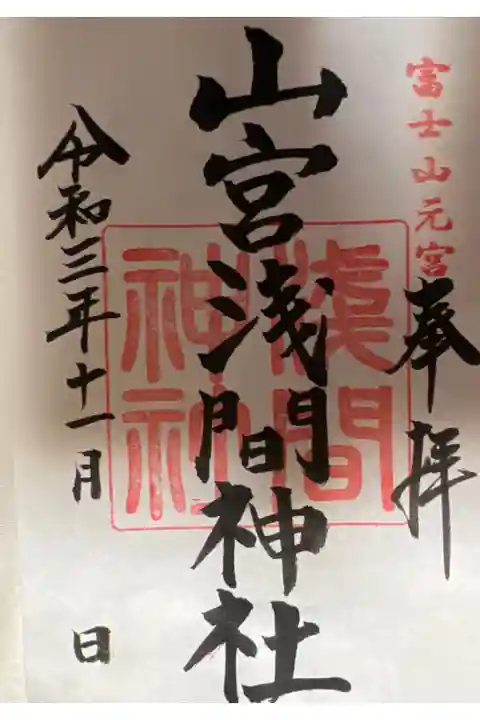 富士山元宮
奉拝
山宮浅間神社
淺間
神社
令和三年十一月 日